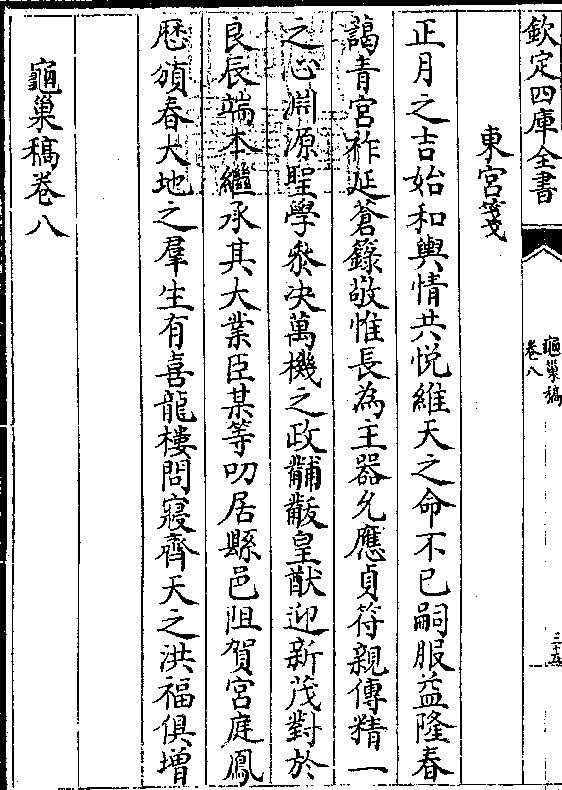 欽定四庫全書
龜巢稿
卷八
三十五
東宮箋
正月之吉始和輿情共悅維天之命不已嗣服益隆春
藹青宮祚延蒼籙敬惟長為主器允應貞符親傳精一
之心淵源聖學叅决萬機之政黼黻皇猷迎新茂對於
良辰端本繼承其大業臣某等叨居縣邑阻賀宮庭鳳
厯頒春大地之羣生有喜龍樓問寢齊天之洪福俱增
龜巢稿卷八